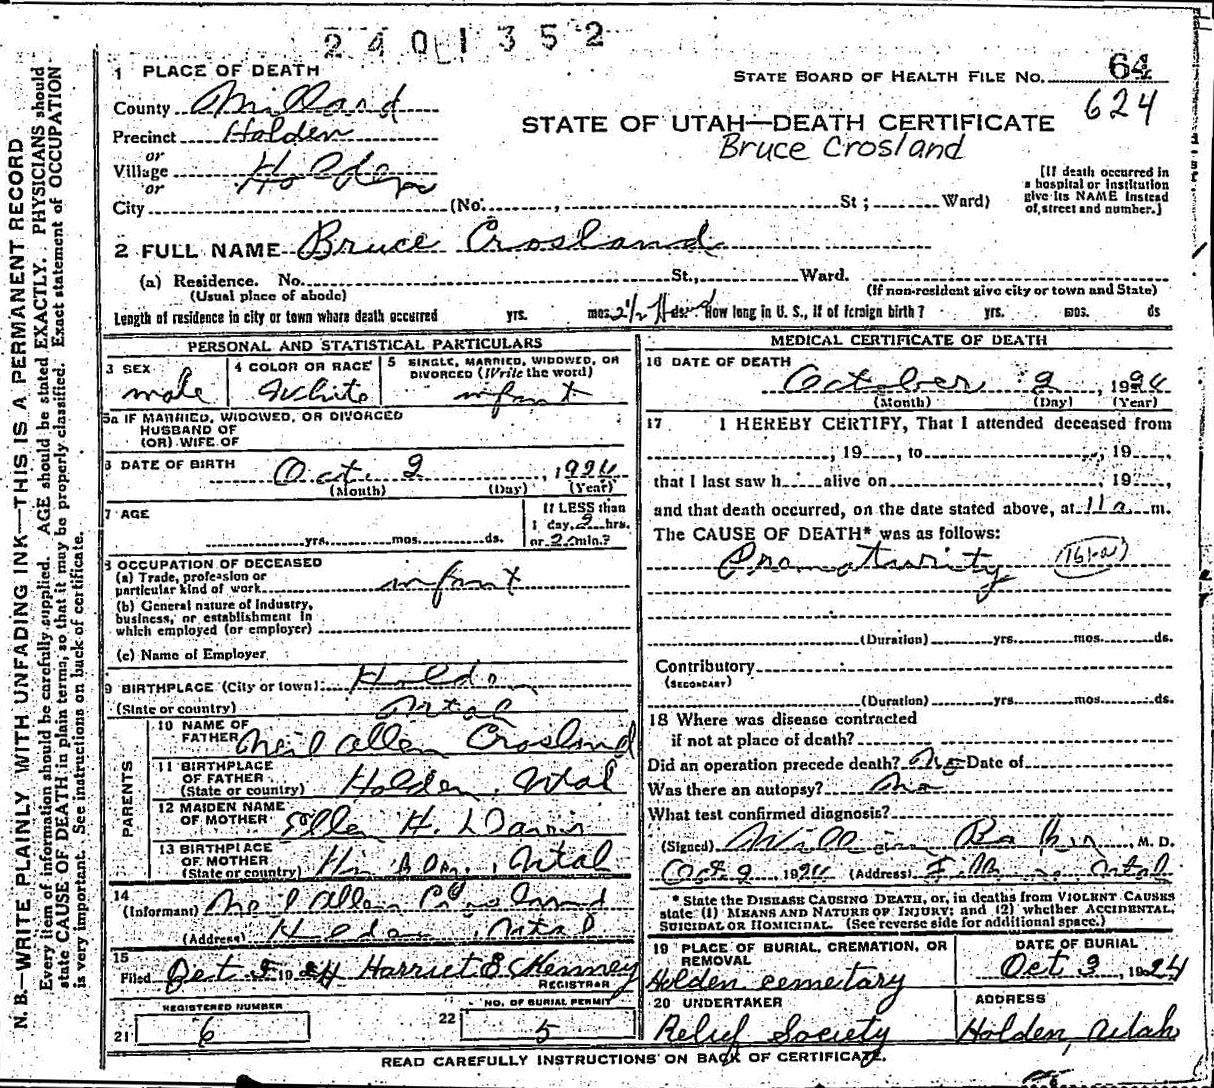 2401352
1 PLACE OF DEATH
STATE BOARD OF HEALTH FILE NO. 64
County Millard
624
Precinct Holden
STATE OF UTAH—DEATH CERTIFICATE
or
Bruce Crosland
Village Holden
or
[If death occurred in a hospital or institution give its NAME instead of street and number.]
City (No. , St ; Ward)
2 FULL NAME Bruce Crosland
(a) Residence. No. St., Ward.
(Usual place of abode) (If non-resident give city or town and State)
Length of residence in city or town where death occurred yrs. mos. 2½ ds. How long in U. S., if of foreign birth? yrs. mos. ds
PERSONAL AND STATISTICAL PARTICULARS
3 SEX male
4 COLOR OR RACE White
5 SINGLE, MARRIED, WIDOWED, OR DIVORCED (Write the word) infant
5a IF MARRIED, WIDOWED, OR DIVORCED
HUSBAND OF
(OR) WIFE OF
6 DATE OF BIRTH Oct. 2, 1924
(Month) (Day) (Year)
7 AGE yrs. mos. ds.
If LESS than
1 day, 2 hrs.
or min.?
8 OCCUPATION OF DECEASED
(a) Trade, profession or
particular kind of work infant
(b) General nature of industry,
business, or establishment in
which employed (or employer)
(c) Name of Employer
9 BIRTHPLACE (City or town) Holden
(State or country) Utah
PARENTS
10 NAME OF
FATHER Neil Allen Crosland
11 BIRTHPLACE
OF FATHER
(State or country) Holden, Utah
12 MAIDEN NAME
OF MOTHER Ellen H.
13 BIRTHPLACE
OF MOTHER
(State or country) Utah
14
(Informant) Neil Allen Crosland
(Address) Holden, Utah
15
Filed Oct 5 1924 Harriet S
REGISTRAR
REGISTERED NUMBER
21 6
NO. OF BURIAL PERMIT
22 5
MEDICAL CERTIFICATE OF DEATH
16 DATE OF DEATH
October 2, 1924
(Month) (Day) (Year)
17 I HEREBY CERTIFY, That I attended deceased from
, 19 , to , 19 ,
that I last saw h alive on , 19 ,
and that death occurred, on the date stated above, at 11 a m.
The CAUSE OF DEATH* was as follows:
Prematurity
(Duration) yrs. mos. ds.
Contributory
(SECONDARY)
(Duration) yrs. mos. ds.
18 Where was disease contracted
if not at place of death?
Did an operation precede death? No Date of
Was there an autopsy? No
What test confirmed diagnosis?
(Signed) William M. D.
Oct 2, 1924 (Address) Utah
* State the DISEASE CAUSING DEATH, or, in deaths from VIOLENT CAUSES
state (1) MEANS AND NATURE OF INJURY; and (2) whether ACCIDENTAL,
SUICIDAL OR HOMICIDAL. (See reverse side for additional space.)
19 PLACE OF BURIAL, CREMATION, OR
REMOVAL
Holden cemetary
DATE OF BURIAL
Oct 3, 1924
20 UNDERTAKER
Relief Society
ADDRESS
Holden, Utah
READ CAREFULLY INSTRUCTIONS ON BACK OF CERTIFICATE.
N. B.—WRITE PLAINLY WITH UNFADING INK—THIS IS A PERMANENT RECORD
Every item of information should be carefully supplied. AGE should be stated EXACTLY. PHYSICIANS should
state CAUSE OF DEATH in plain terms, so that it may be properly classified. Exact statement of OCCUPATION
is very important. See instructions on back of certificate.